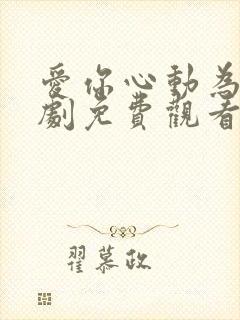 愛你心動為
劇免費觀看
翟慕政